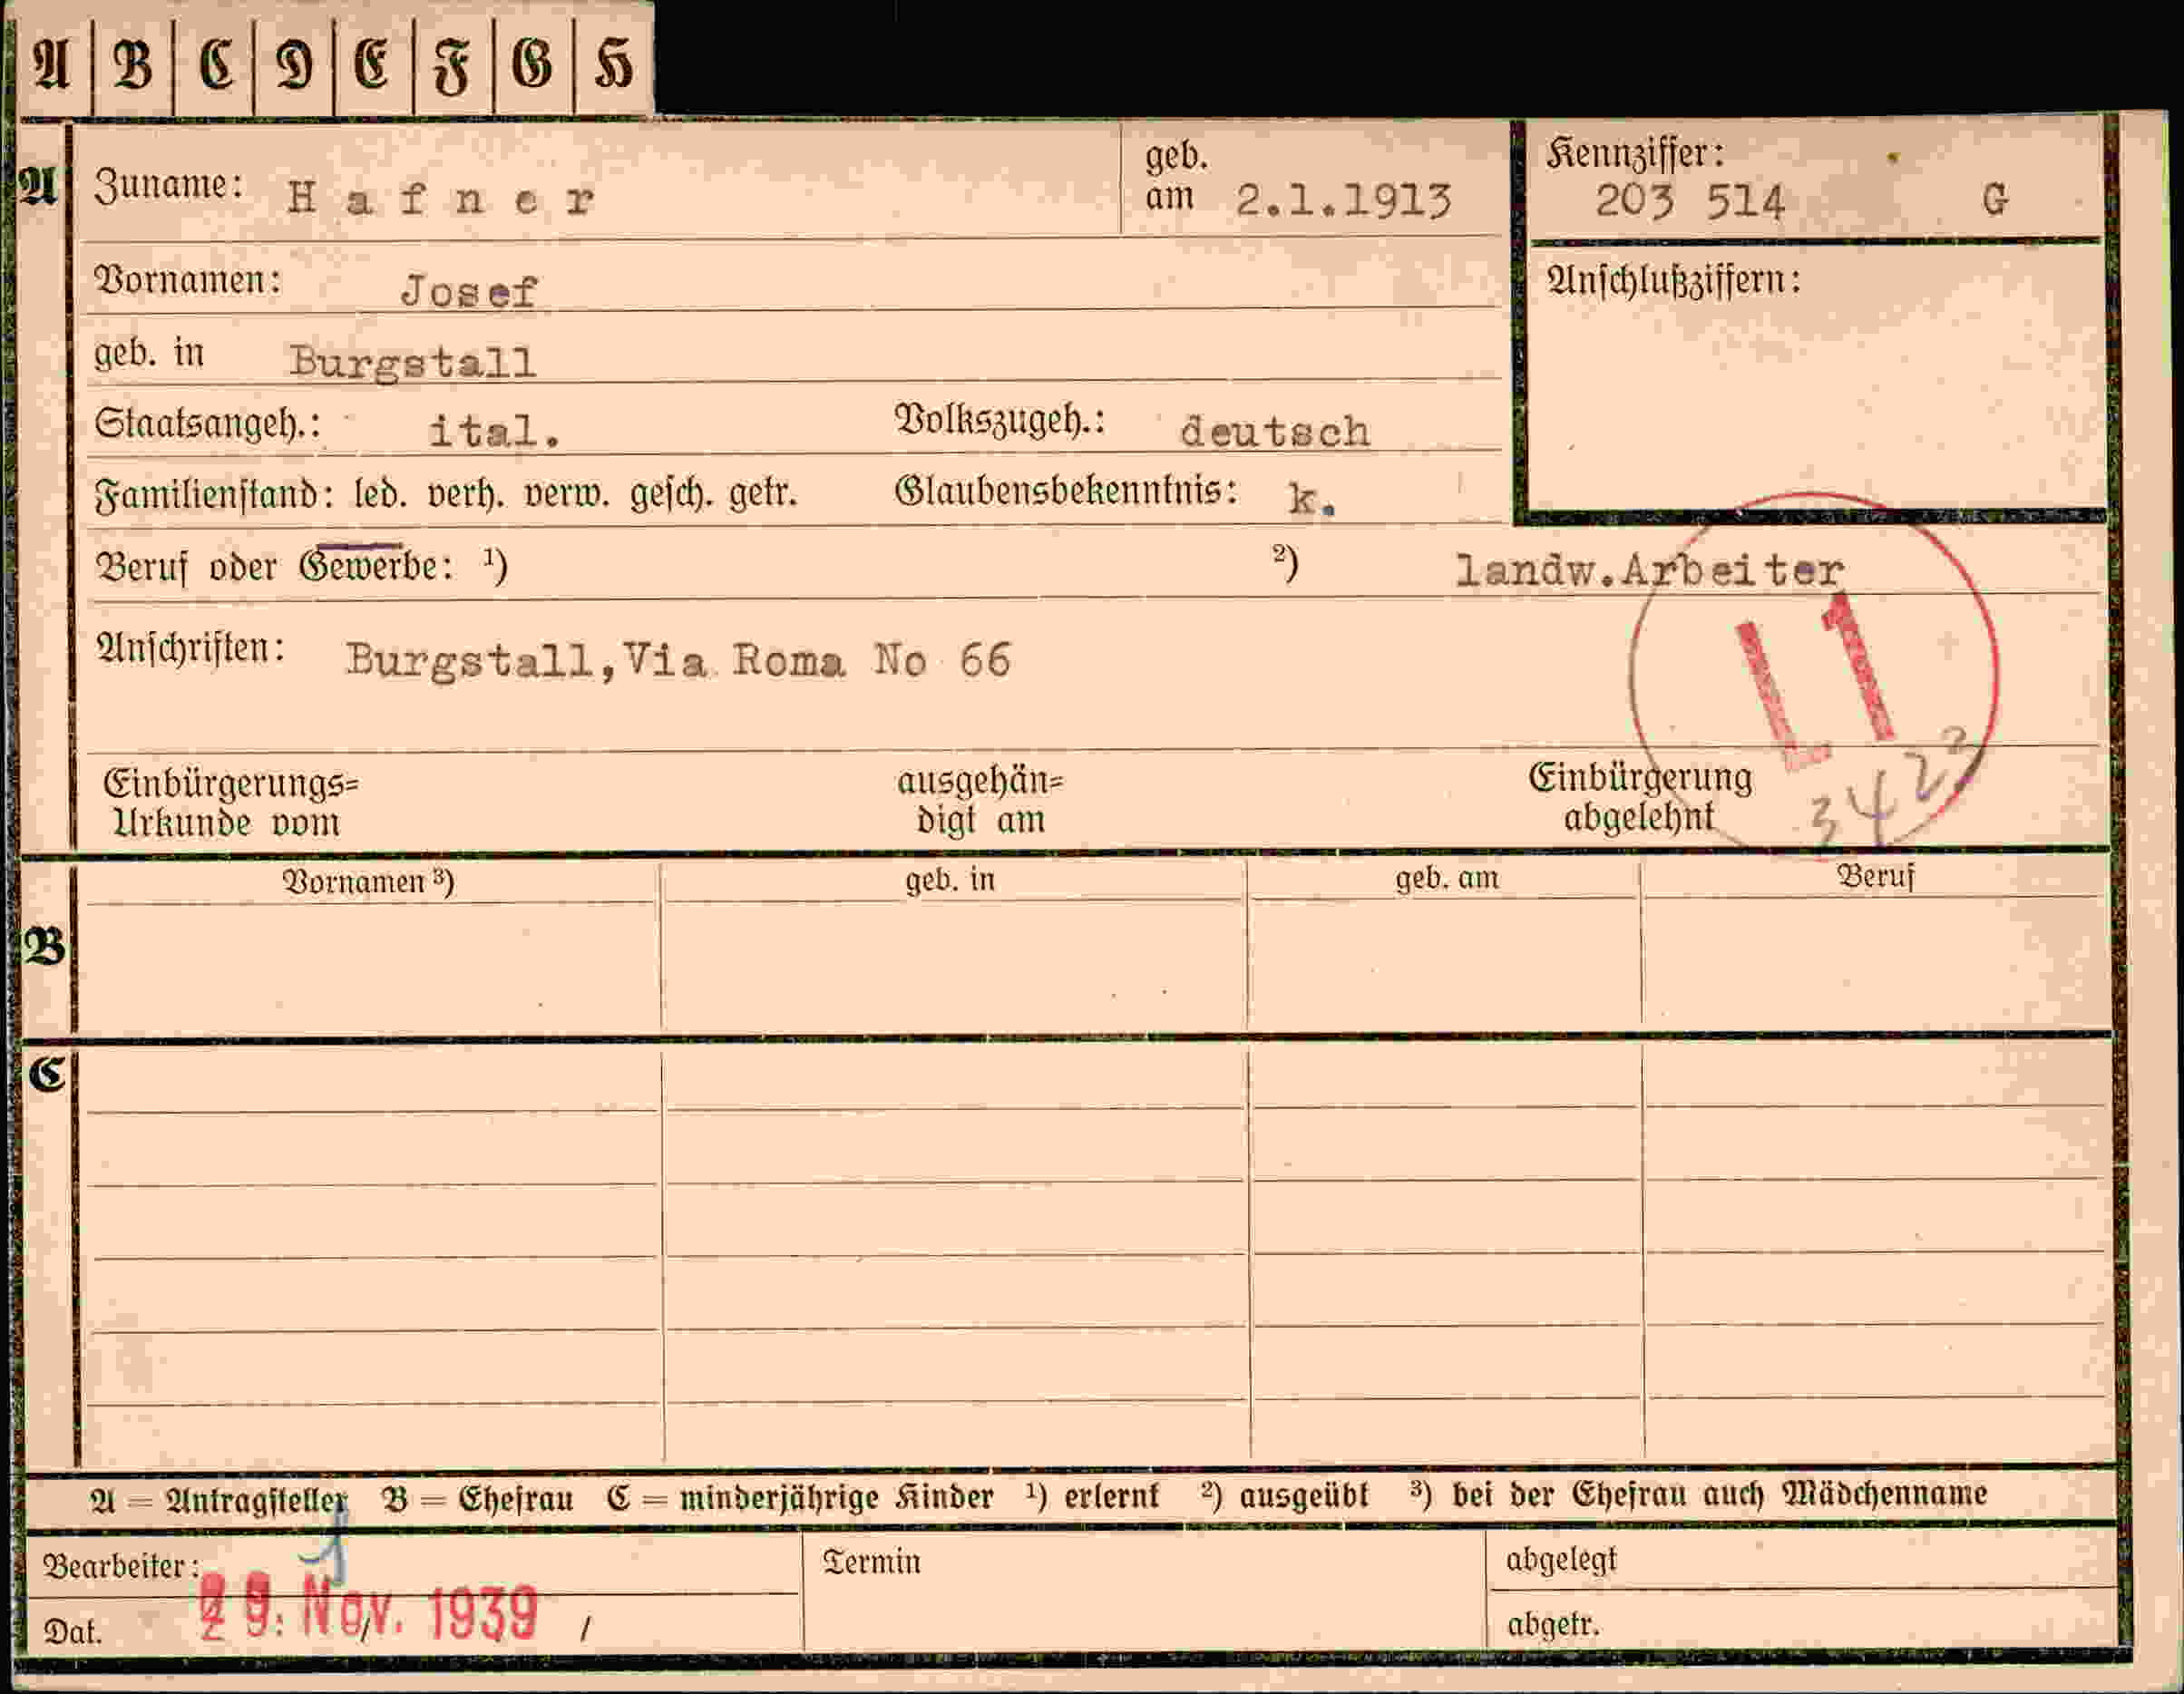 A B C D E F G H
A Zuname: Hafner geb. am 2.1.1913 Kennziffer: 203 514 G
Vornamen: Josef Anschlußziffern:
geb. in Burgstall
Staatsangeh.: ital. Volkszugeh.: deutsch
Familienstand: led. verh. verw. gesch. getr. Glaubensbekenntnis: k.
Beruf oder Gewerbe: ¹) ²) landw.Arbeiter
Anschriften: Burgstall,Via Roma No 66
L1
3423
Einbürgerungs= ausgehän= Einbürgerung
Urkunde vom digt am abgelehnt
B Vornamen ³) geb. in geb. am Beruf
C
A = Antragsteller B = Ehefrau C = minderjährige Kinder ¹) erlernt ²) ausgeübt ³) bei der Ehefrau auch Mädchenname
Bearbeiter: Termin abgelegt
Dat. 29. Nov. 1939 / abgetr.